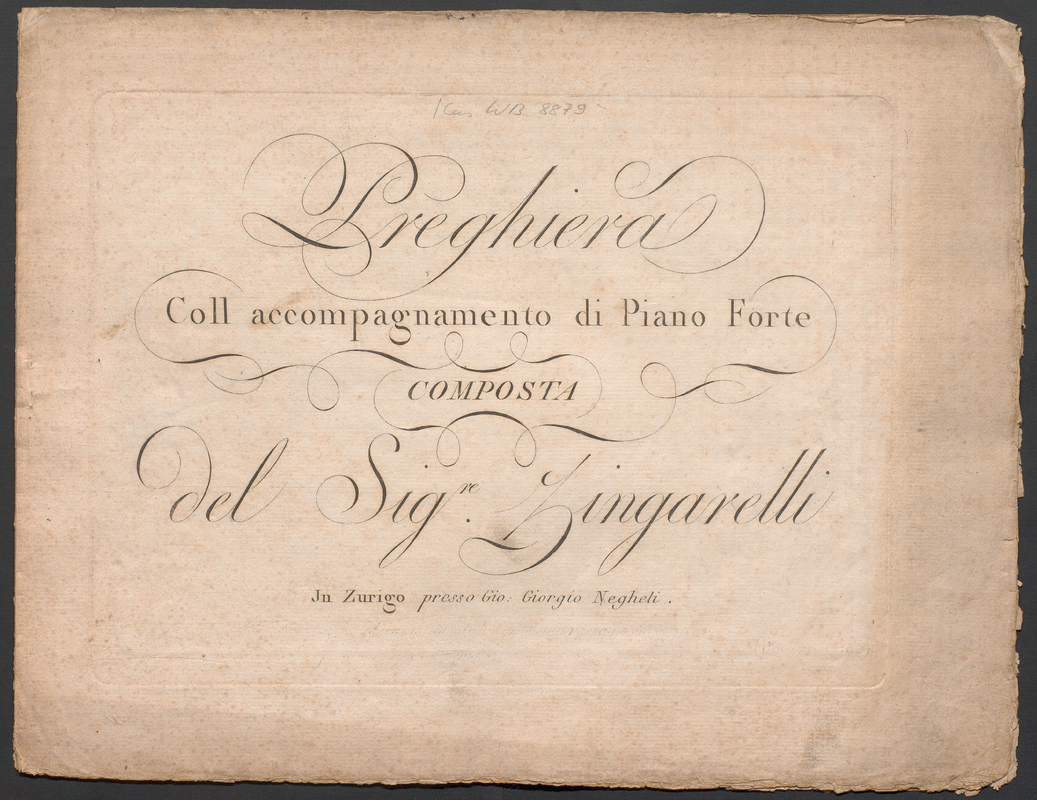 WB 8879
Preghiera
Coll accompagnamento di Piano Forte
COMPOSTA
del Sig.re Zingarelli
Jn Zurigo presso Gio: Giorgio Negheli.